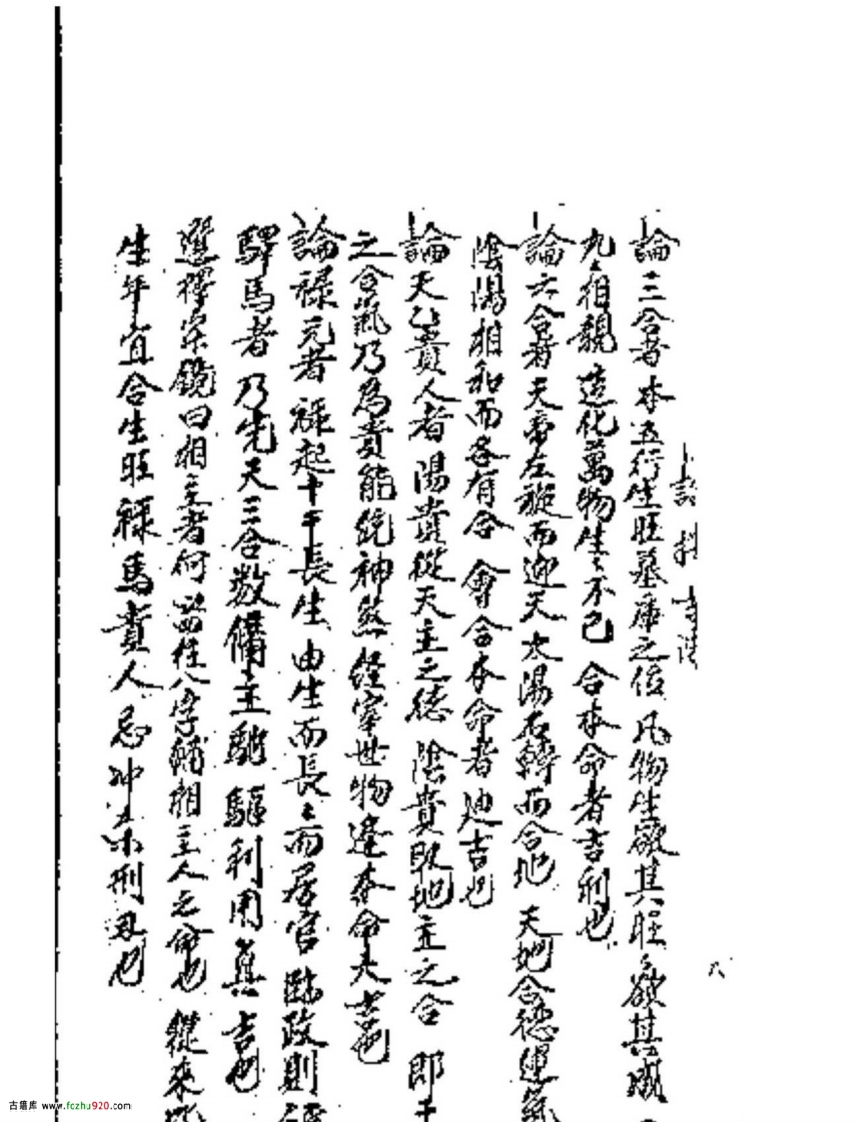 論三合者本五行生旺墓庫之位凡物生欲其旺欲其成
九〻相親造化萬物生〻不已合本命者吉利也
論六合者天帝左旋而迎天太陽右轉而合地天地合德運氣
陰陽相和而各有合會合本命者迪吉也
論天乙貴人者陽貴從天主之德陰貴取地主之合即干
之合氣乃為貴能統神煞經宰世物逢本命大吉也
論祿元者祿起十干長生由生而長〻而居官臨政則
驛馬者乃先天三合數備主馳驅利用真吉也
選擇宗鏡曰相主者何四柱八字輔相主人之命也從來
生年宜合生旺祿馬貴人忌沖刑刃也
八
古籍库 www.fczhu920.com